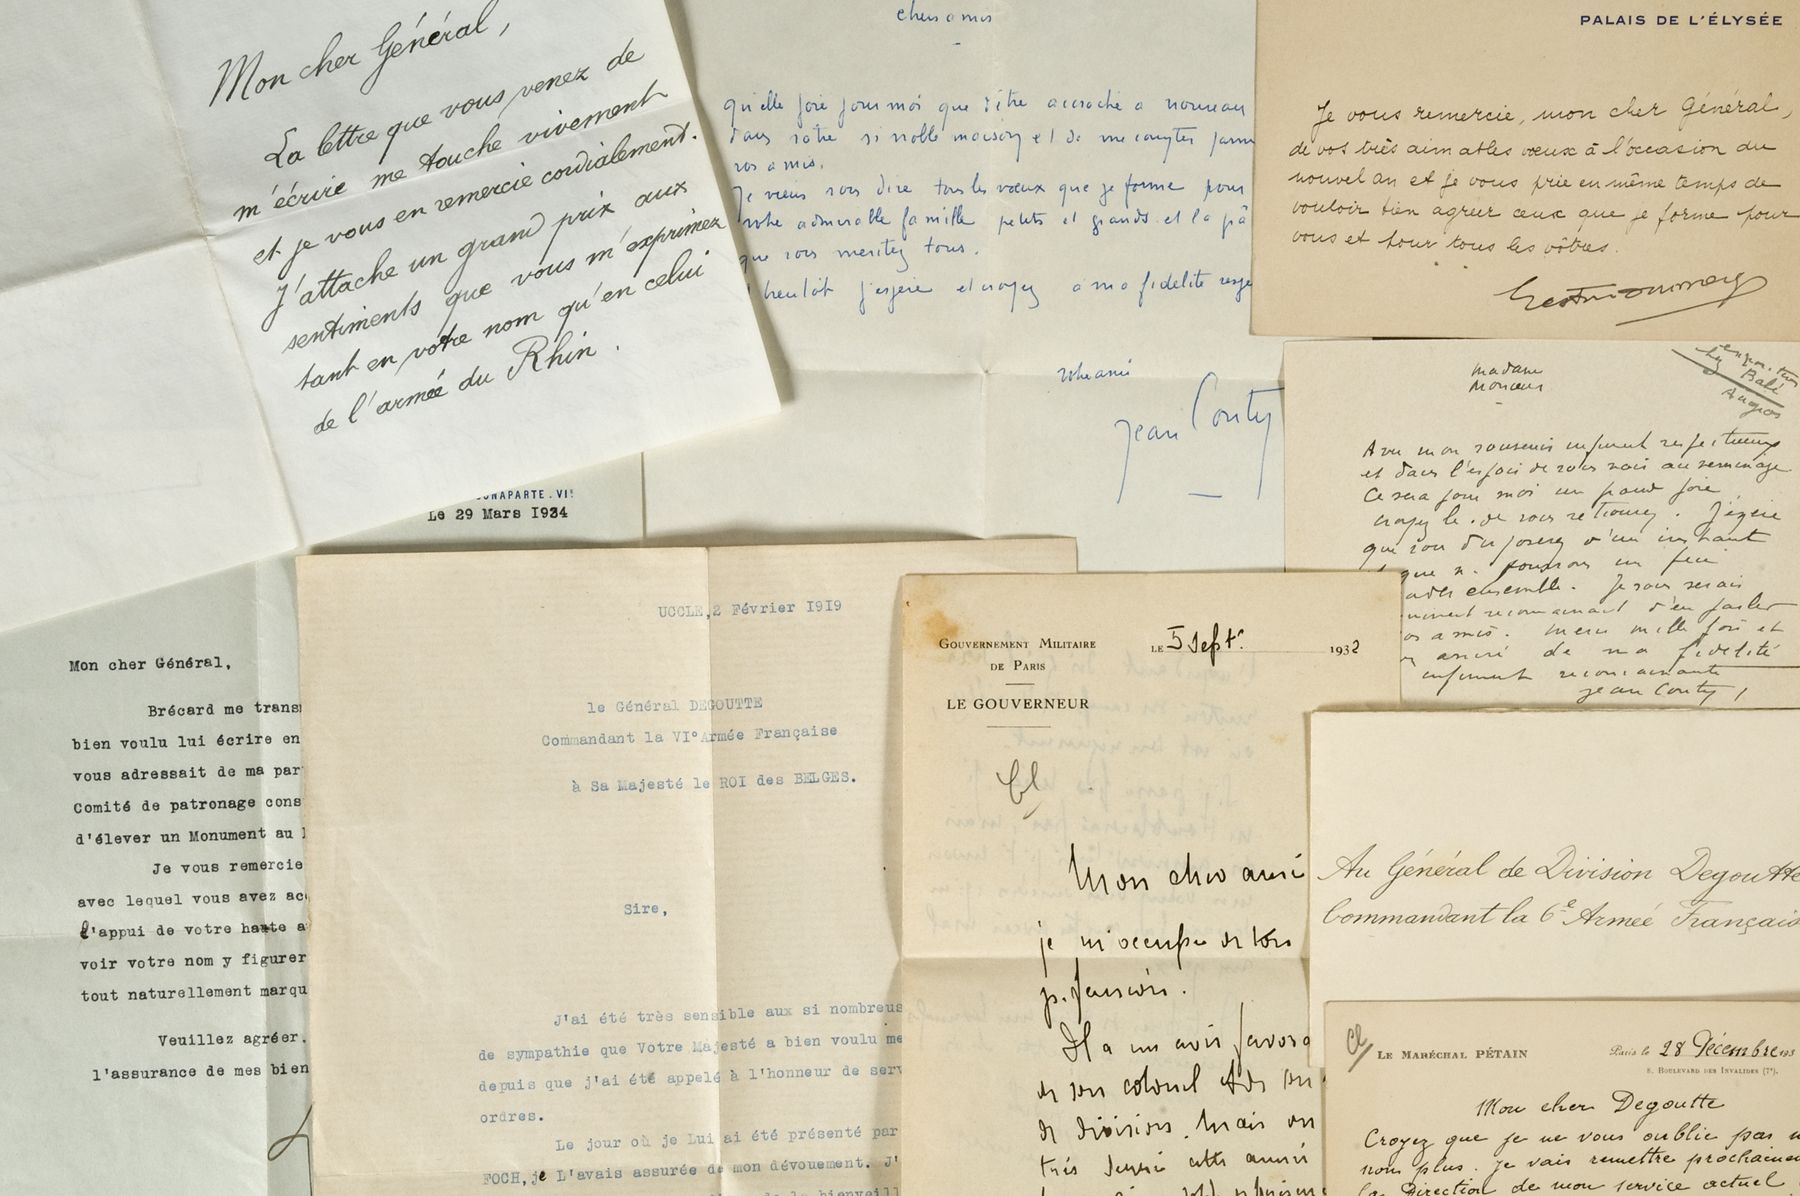 Mon cher Général,
La lettre que vous venez de
m'écrire me touche vivement
et je vous en remercie cordialement.
J'attache un grand prix aux
sentiments que vous m'exprimez
tant en votre nom qu'en celui
de l'armée du Rhin.
chers amis
qu'elle joie pour moi que d'être accroché a nouveau
dans votre si noble maison et de me compter parm
vos amis.
Je viens vous dire tous les vœux que je forme pour
votre admirable famille petits et grands et la pa
que vous meritez tous.
bientôt j'espère et croyez a ma fidelité respe
votre ami
Jean Couty
PALAIS DE L'ÉLYSÉE
Je vous remercie, mon cher Général,
de vos très aimables vœux à l'occasion du
nouvel an et je vous prie en même temps de
vouloir bien agréer ceux que je forme pour
vous et pour tous les vôtres.
Madame
Monsieur
Avec mon souvenir infiniment respectueux
et dans l'espoir de vous voir au vernissage
Ce sera pour moi une grande joie
croyez le. de vous retrouver. J'espère
que vous disposerez d'un instant
que n. pourrons un peu
ensemble. Je vous serais
reconnaissant d'en parler
amis. merci mille fois et
de ma fidelité
infiniment reconnaissante
Jean Couty
ONAPARTE.VIᵉ
Le 29 Mars 1934
Mon cher Général,
Brécard me trans
bien voulu lui écrire en
vous adressait de ma par
Comité de patronage cons
d'élever un Monument au
Je vous remercie
avec lequel vous avez ac
l'appui de votre haute a
voir votre nom y figurer
tout naturellement marqu
Veuillez agréer,
l'assurance de mes bien
UCCLE,2 Février 1919
le Général DEGOUTTE
Commandant la VI° Armée Française
à Sa Majesté le ROI des BELGES.
Sire,
J'ai été très sensible aux si nombreus
de sympathie que Votre Majesté a bien voulu me
depuis que j'ai été appelé à l'honneur de serv
ordres.
Le jour où je Lui ai été présenté par
FOCH, je L'avais assurée de mon dévouement. J'
de la bienveill
GOUVERNEMENT MILITAIRE
DE PARIS
LE 5 Septre 1932
LE GOUVERNEUR
Cl
Mon cher ami
je m'occupe de
Il a un avis favora
de son colonel
de division. Mais on
très cette année
Au Général de Division Degoutte
Commandant la 6e Armée Français
Cl
LE MARÉCHAL PÉTAIN
Paris le 28 Décembre 193
8, BOULEVARD DES INVALIDES (7e).
Mon cher Degoutte
Croyez que je ne vous oublie pas
non plus. Je vais remettre prochaineme
la Direction de mon service actuel